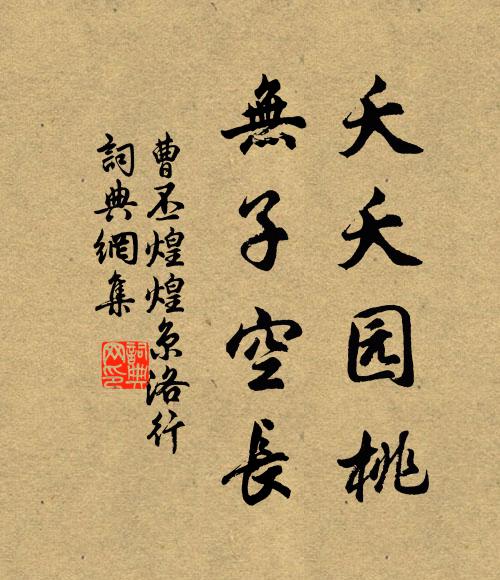 夭夭园桃
無子空長
曹丕煌煌京洛行
詞典網集
詞典網印